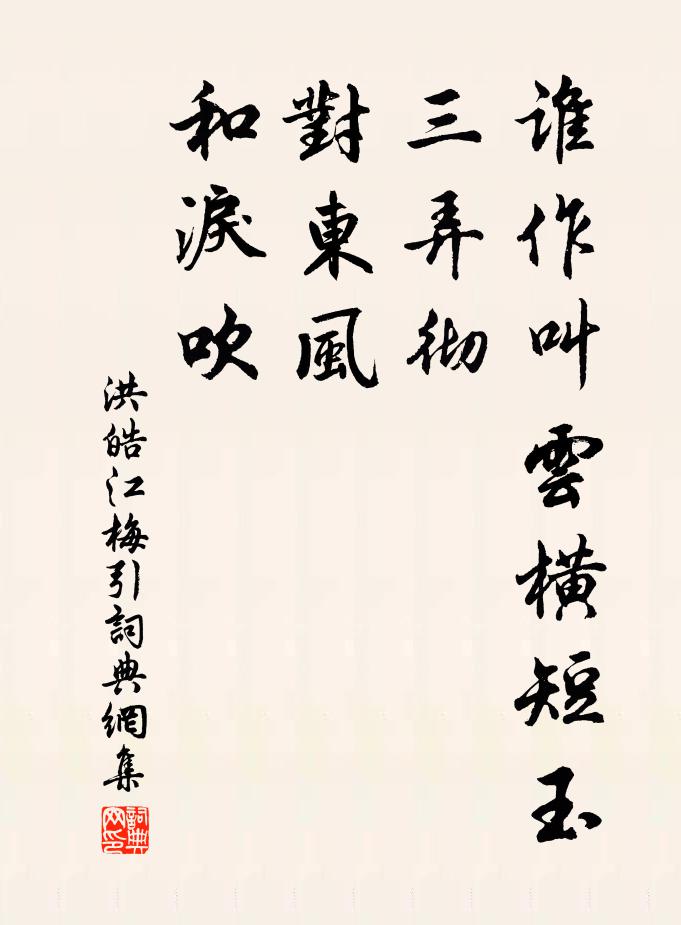 誰作叫雲橫短玉
三弄彻
對東風
和淚吹
洪皓江梅引詞典網集
詞典
网印